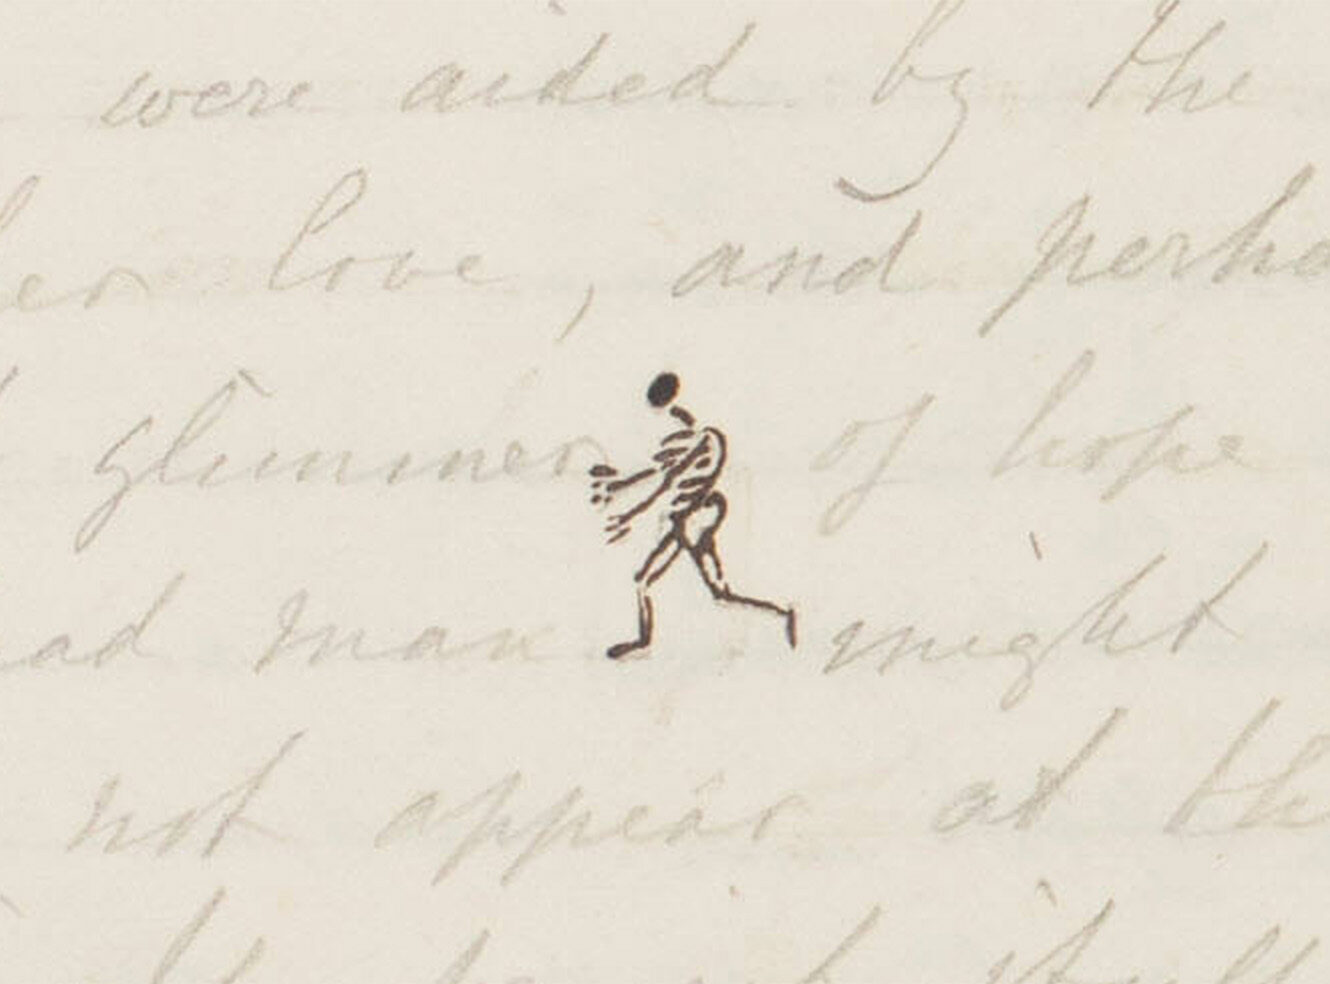 were aided by the
love, and perha
glimmer of hope
ad man might
not appear at th